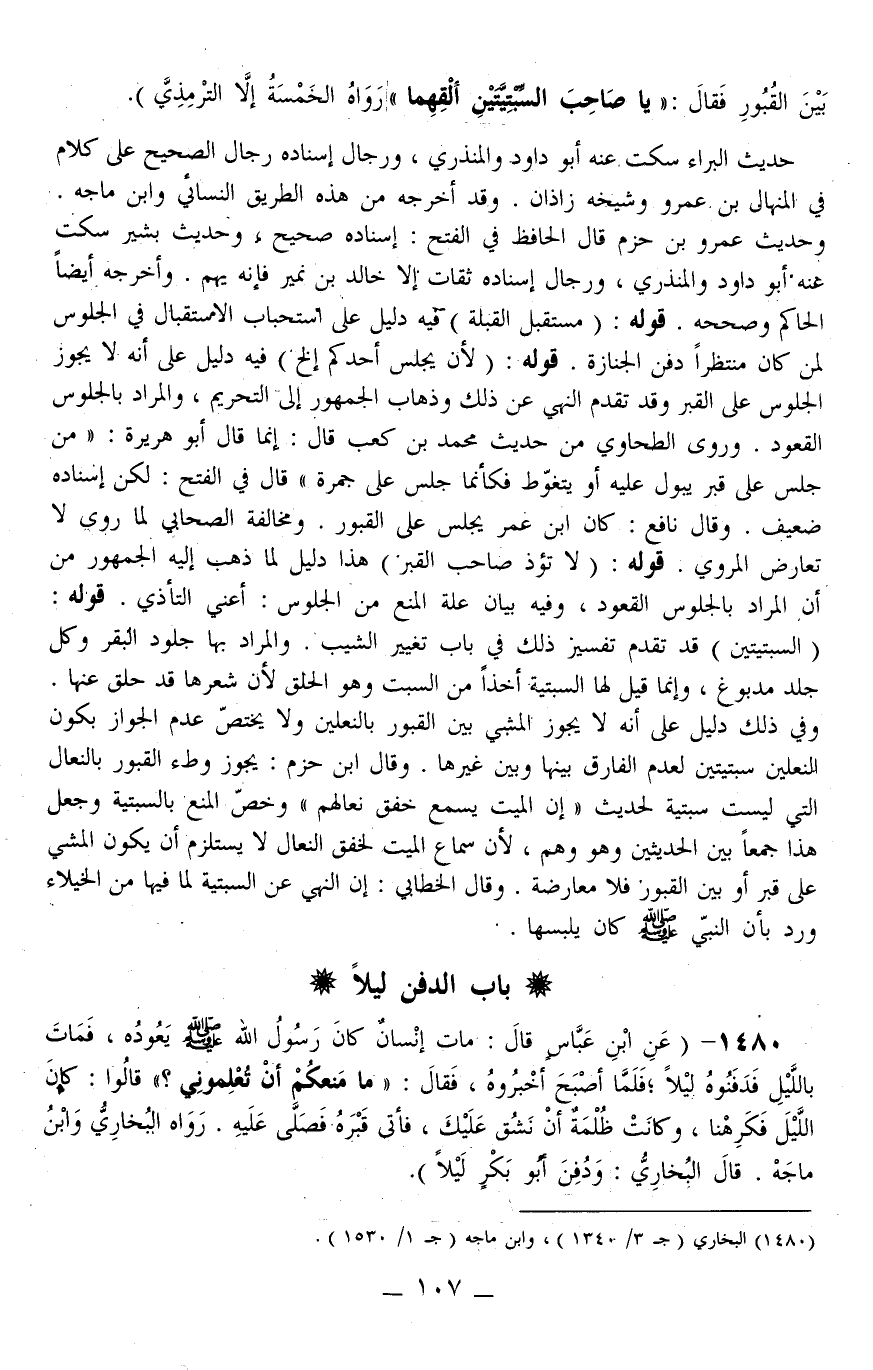 بَيْنَ القُبُورِ فَقالَ :« يا صَاحِبَ السِّبْتِيَّتَيْنِ ألْقِهِما » رَوَاهُ الخَمْسَةُ إلَّا الترْمِذِيَّ ).
حديث البراء سكت عنه أبو داود والمنذري ، ورجال إسناده رجال الصحيح على كلام
في المنهال بن عمرو وشيخه زاذان . وقد أخرجه من هذه الطريق النسائي وابن ماجه .
وحديث عمرو بن حزم قال الحافظ في الفتح : إسناده صحيح ، وحديث بشير سكت
عنه أبو داود والمنذري ، ورجال إسناده ثقات إلا خالد بن نمير فإنه يهم . وأخرجه أيضاً
الحاكم وصححه . قوله : ( مستقبل القبلة ) فيه دليل على استحباب الاستقبال في الجلوس
لمن كان منتظراً دفن الجنازة . قوله : ( لأن يجلس أحدكم إلخ ) فيه دليل على أنه لا يجوز
الجلوس على القبر وقد تقدم النهي عن ذلك وذهاب الجمهور إلى التحريم ، والمراد بالجلوس
القعود . وروى الطحاوي من حديث محمد بن كعب قال : إنما قال أبو هريرة : « من
جلس على قبر يبول عليه أو يتغوّط فكأنما جلس على جمرة » قال في الفتح : لكن إسناده
ضعيف . وقال نافع : كان ابن عمر يجلس على القبور . ومخالفة الصحابي لما روي لا
تعارض المروي . قوله : ( لا تؤذ صاحب القبر ) هذا دليل لما ذهب إليه الجمهور من
أن المراد بالجلوس القعود ، وفيه بيان علة المنع من الجلوس : أعني التأذي . قوله :
( السبتيتين ) قد تقدم تفسير ذلك في باب تغيير الشيب . والمراد بها جلود البقر وكل
جلد مدبوغ ، وإنما قيل لها السبتية أخذاً من السبت وهو الحلق لأن شعرها قد حلق عنها .
وفي ذلك دليل على أنه لا يجوز المشي بين القبور بالنعلين ولا يختصّ عدم الجواز بكون
النعلين سبتيتين لعدم الفارق بينها وبين غيرها . وقال ابن حزم : يجوز وطء القبور بالنعال
التي ليست سبتية لحديث « إن الميت يسمع خفق نعالهم » وخصّ المنع بالسبتية وجعل
هذا جمعاً بين الحديثين وهو وهم ، لأن سماع الميت لخفق النعال لا يستلزم أن يكون المشي
على قبر أو بين القبور فلا معارضة . وقال الخطابي : إن النهي عن السبتية لما فيها من الخيلاء
ورد بأن النبيّ ﷺ كان يلبسها .
باب الدفن ليلاً
١٤٨٠– ( عَنِ ابْنِ عَبَّاسٍ قالَ : مات إنْسانٌ كانَ رَسُولُ الله ﷺ يَعُودُه ، فَمَاتَ
باللَّيْلِ فَدَفَنُوهُ لَيْلاً ؛فَلَمَّا أصْبَحَ أخْبرُوهُ ، فَقالَ : « ما مَنعكُمْ أنْ تُعْلِموني ؟» قالُوا : كانَ
اللَّيْلَ فَكَرِهْنا ، وكانَتْ ظُلْمَةٌ أنْ نَشُق عَلَيْكَ ، فأتى قَبْرَهُ فَصَلَّى عَلَيهِ . رَوَاه البُخارِيُّ وَابْنُ
ماجَهْ . قالَ البُخارِيُّ : وَدُفِنَ أبُو بَكْرٍ لَيْلاً ).
(١٤٨٠) البخاري ( جـ ٣/ ١٣٤٠ ) ، وابن ماجه ( جـ ١/ ١٥٣٠ ) .
ـ ١٠٧ ـ